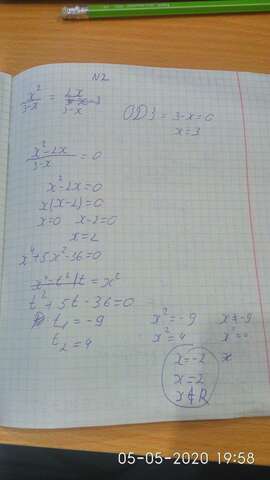 N2
x²/3-x = 2x/3-x
ОДЗ = 3-x=0
x=3
x²-2x/3-x = 0
x²-2x=0
x(x-2)=0
x=0 x-2=0
x=2
x⁴+5x²-36=0
t=x²
t²+5t-36=0
t₁=-9
t₂=4
x²=-9
x²=4
x=-2
x=2
x∉R
05-05-2020 19:58